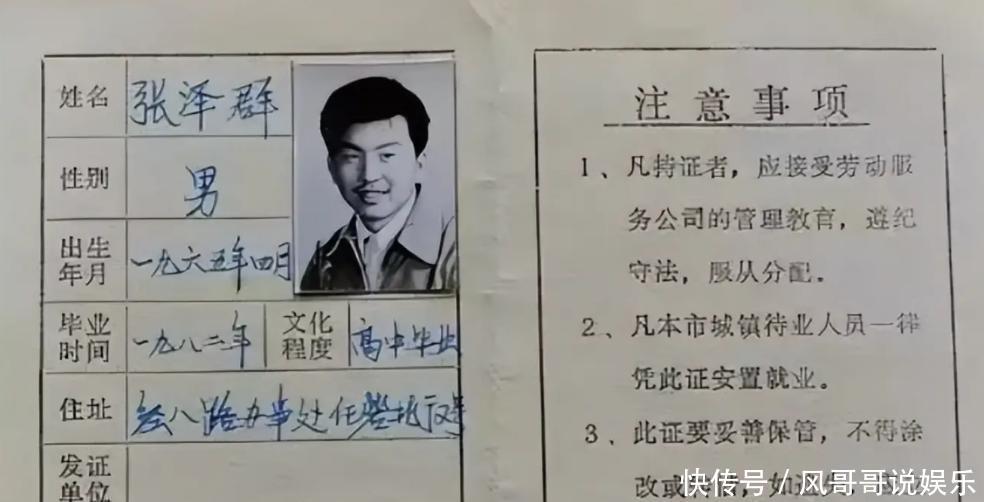 姓名 张泽群
性别 男
出生年月 一九六五年四月
毕业时间 一九八二年 文化程度 高中毕业
住址 经八路办事处任砦北
发证单位
注意事项
1、凡持证者，应接受劳动服
务公司的管理教育，遵纪
守法，服从分配。
2、凡本市城镇待业人员一律
凭此证安置就业。
3、此证要妥善保管，不得涂
改或
快传号／风哥哥说娱乐